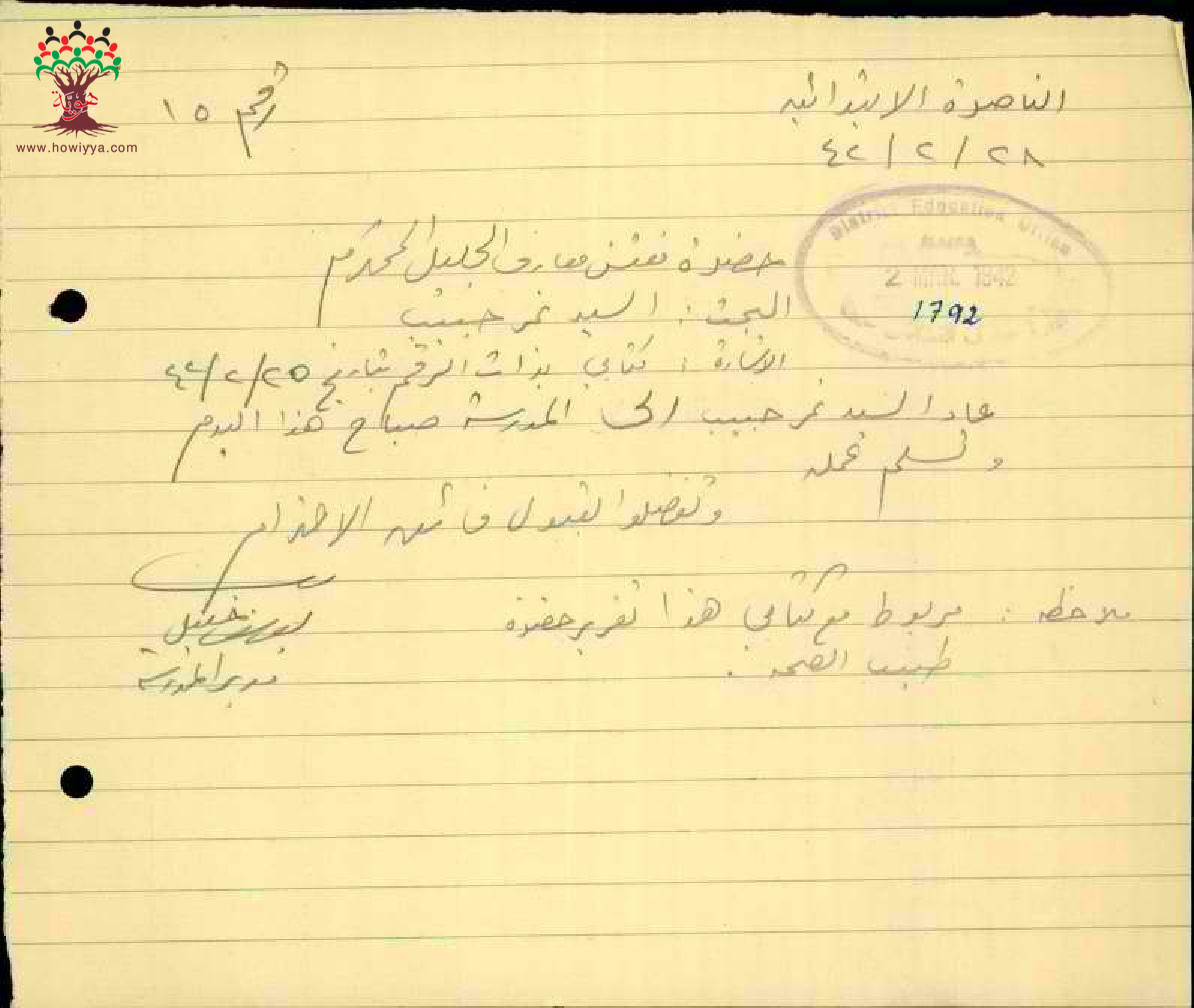 الناصرة الابتدائيه
رقم ١٥
٢٨/٢/٤٢
هوية
www.howiyya.com
District Education Office
2 MAR. 1942
1792
حضرة مفتش معارف الجليل المحترم
البحث : السيد نمر حبيب
الاشارة : كتابي بذات الرقم بتاريخ ٢٥/٢/٤٢
عاد السيد نمر حبيب الى المدرسة صباح هذا اليوم
وتسلم عمله
وتفضلوا بقبول فائق الاحترام
ملاحظه : مربوط مع كتابي هذا تقرير حضرة
طبيب الصحه .
خليل
مدير المدرسه